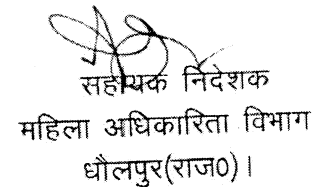 सहायक निदेशक
महिला अधिकारिता विभाग
धौलपुर(राज0)।